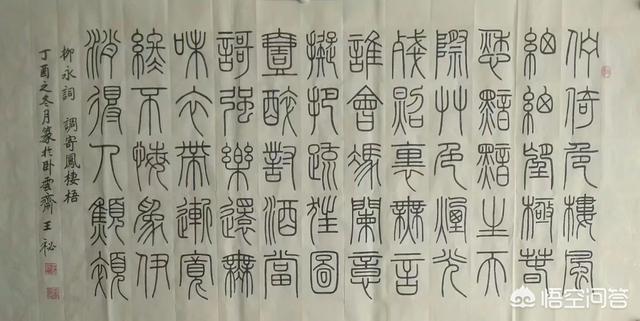 佇倚危樓風
細細望極春
愁黯黯生天
際艸色煙光
殘照裏無言
誰會憑闌意
擬把疏狂圖
壹醉對酒當
謌強樂還無
味衣帶漸寬
終不悔為伊
消得人顦顇
柳永詞 調寄鳳棲梧
丁酉之冬月篆於卧雲齋 王祕
悟空问答